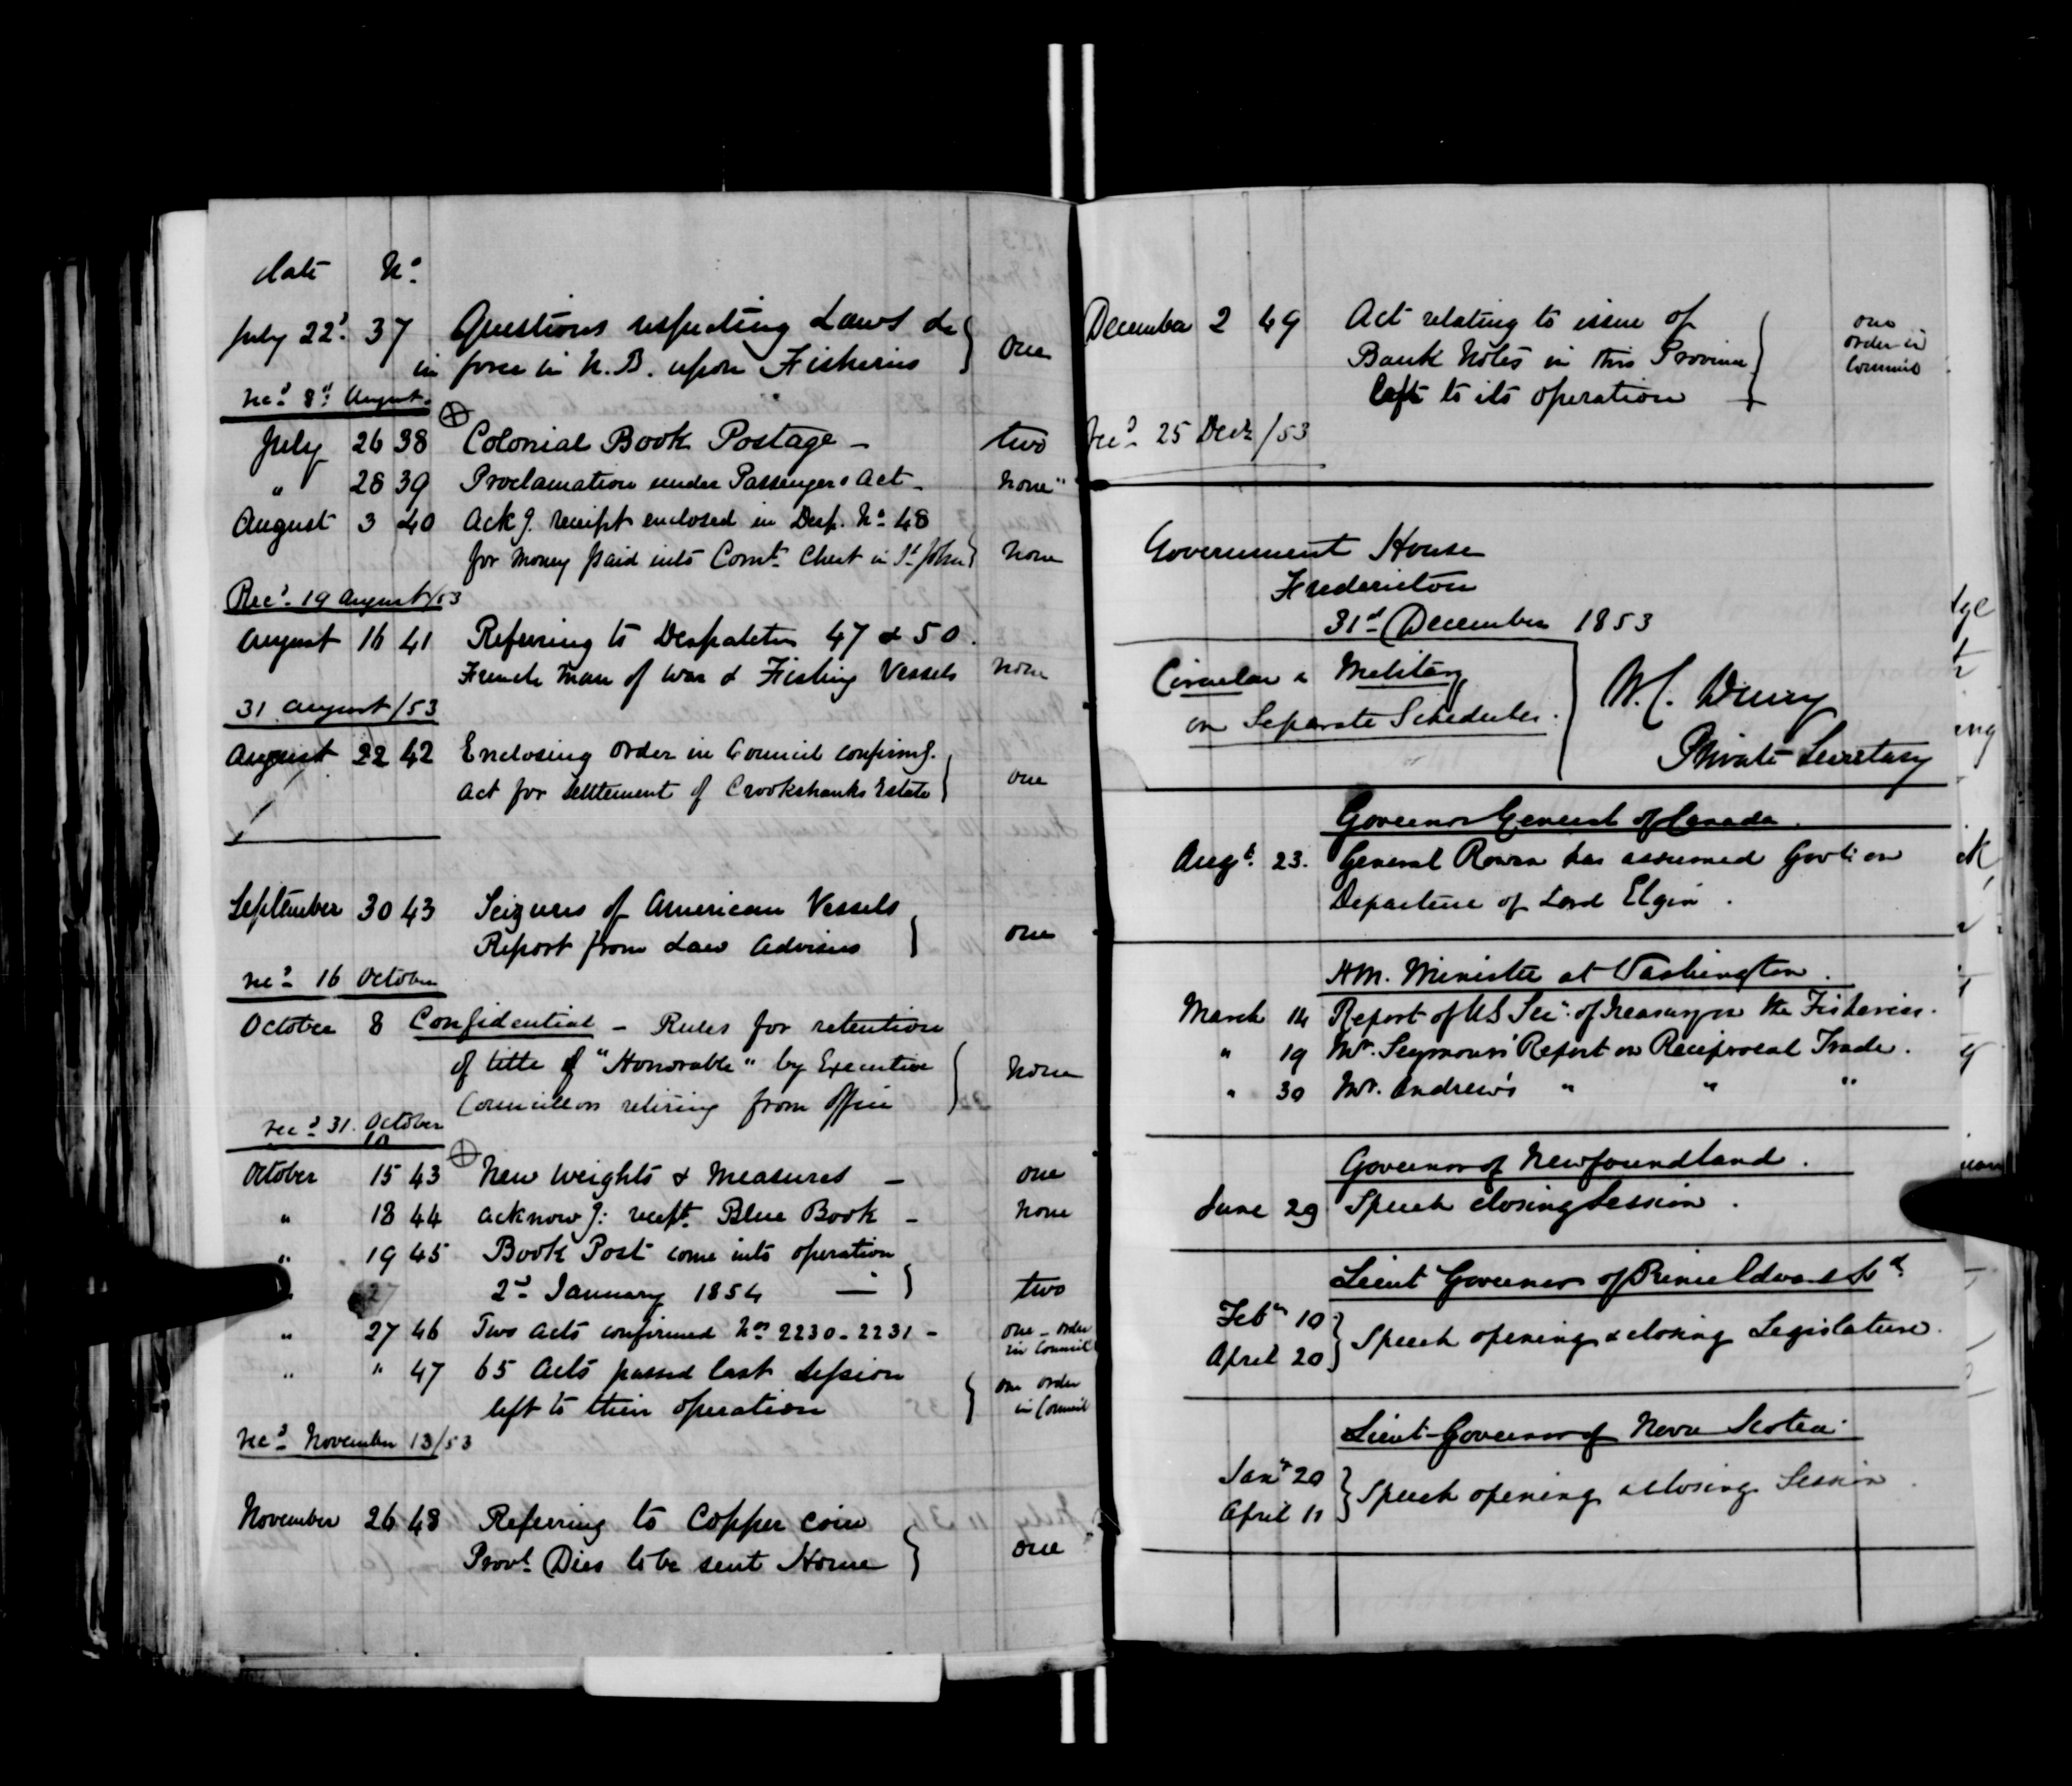 date Nº
July 22d 37 Questions respecting Laws &c } one
in force in N.B. upon Fisheries
recd 8th August
July 26 38 Colonial Book Postage – two
" 28 39 Proclamation under Passengers Act – none
August 3 40 Ackg. receipt enclosed in Desp. No 48
for money paid into Comt. Chest in St John } none
Recd 19 August/53
August 16 41 Referring to Despatches 47 & 50.
French Man of War & Fishing Vessels none
31 August/53
August 22 42 Enclosing Order in Council confirmg.
Act for settlement of Crookshanks Estate } one
September 30 43 Seizures of American Vessels
Report from Law Advisers } one
recd 16 October
October 8 Confidential – Rules for retention
of title of "Honorable" by Executive } none
Councillors retiring from Office
recd 31. October
10
October 15 43 New Weights & Measures – one
" 18 44 acknowg: receipt Blue Book – none
" 19 45 Book Post come into operation
2d January 1854 — } two
" 27 46 Two Acts confirmed Nos 2230-2231 – one – order in Council
" " 47 65 Acts passed last Session } one order
left to their operation in Council
recd November 13/53
November 26 48 Referring to Copper coin
Provl. Dies to be sent Home } one
December 2 49 Act relating to issue of } one
Bank Notes in this Province order in
left to its operation Council
recd 25 Decr /53
Government House
Fredericton
31st December 1853
Circular & Military
on Separate Schedules.
Private Secretary
Governor General of Canada.
Augt. 23. General Rowan has assumed Govt. on
Departure of Lord Elgin.
H.M. Minister at Washington.
March 14 Report of US Secy. of Treasury on the Fisheries.
" 19 Mr. Seymour's Report on Reciprocal Trade.
" 30 Mr. Andrew's " " "
Governor of Newfoundland.
June 29 Speech closing Session.
Lieut Governor of Prince Edward Id.
Feby 10 } Speech opening & closing Legislature.
April 20
Lieut-Governor of Nova Scotia
Jany 20 } Speech opening & closing Session
April 11